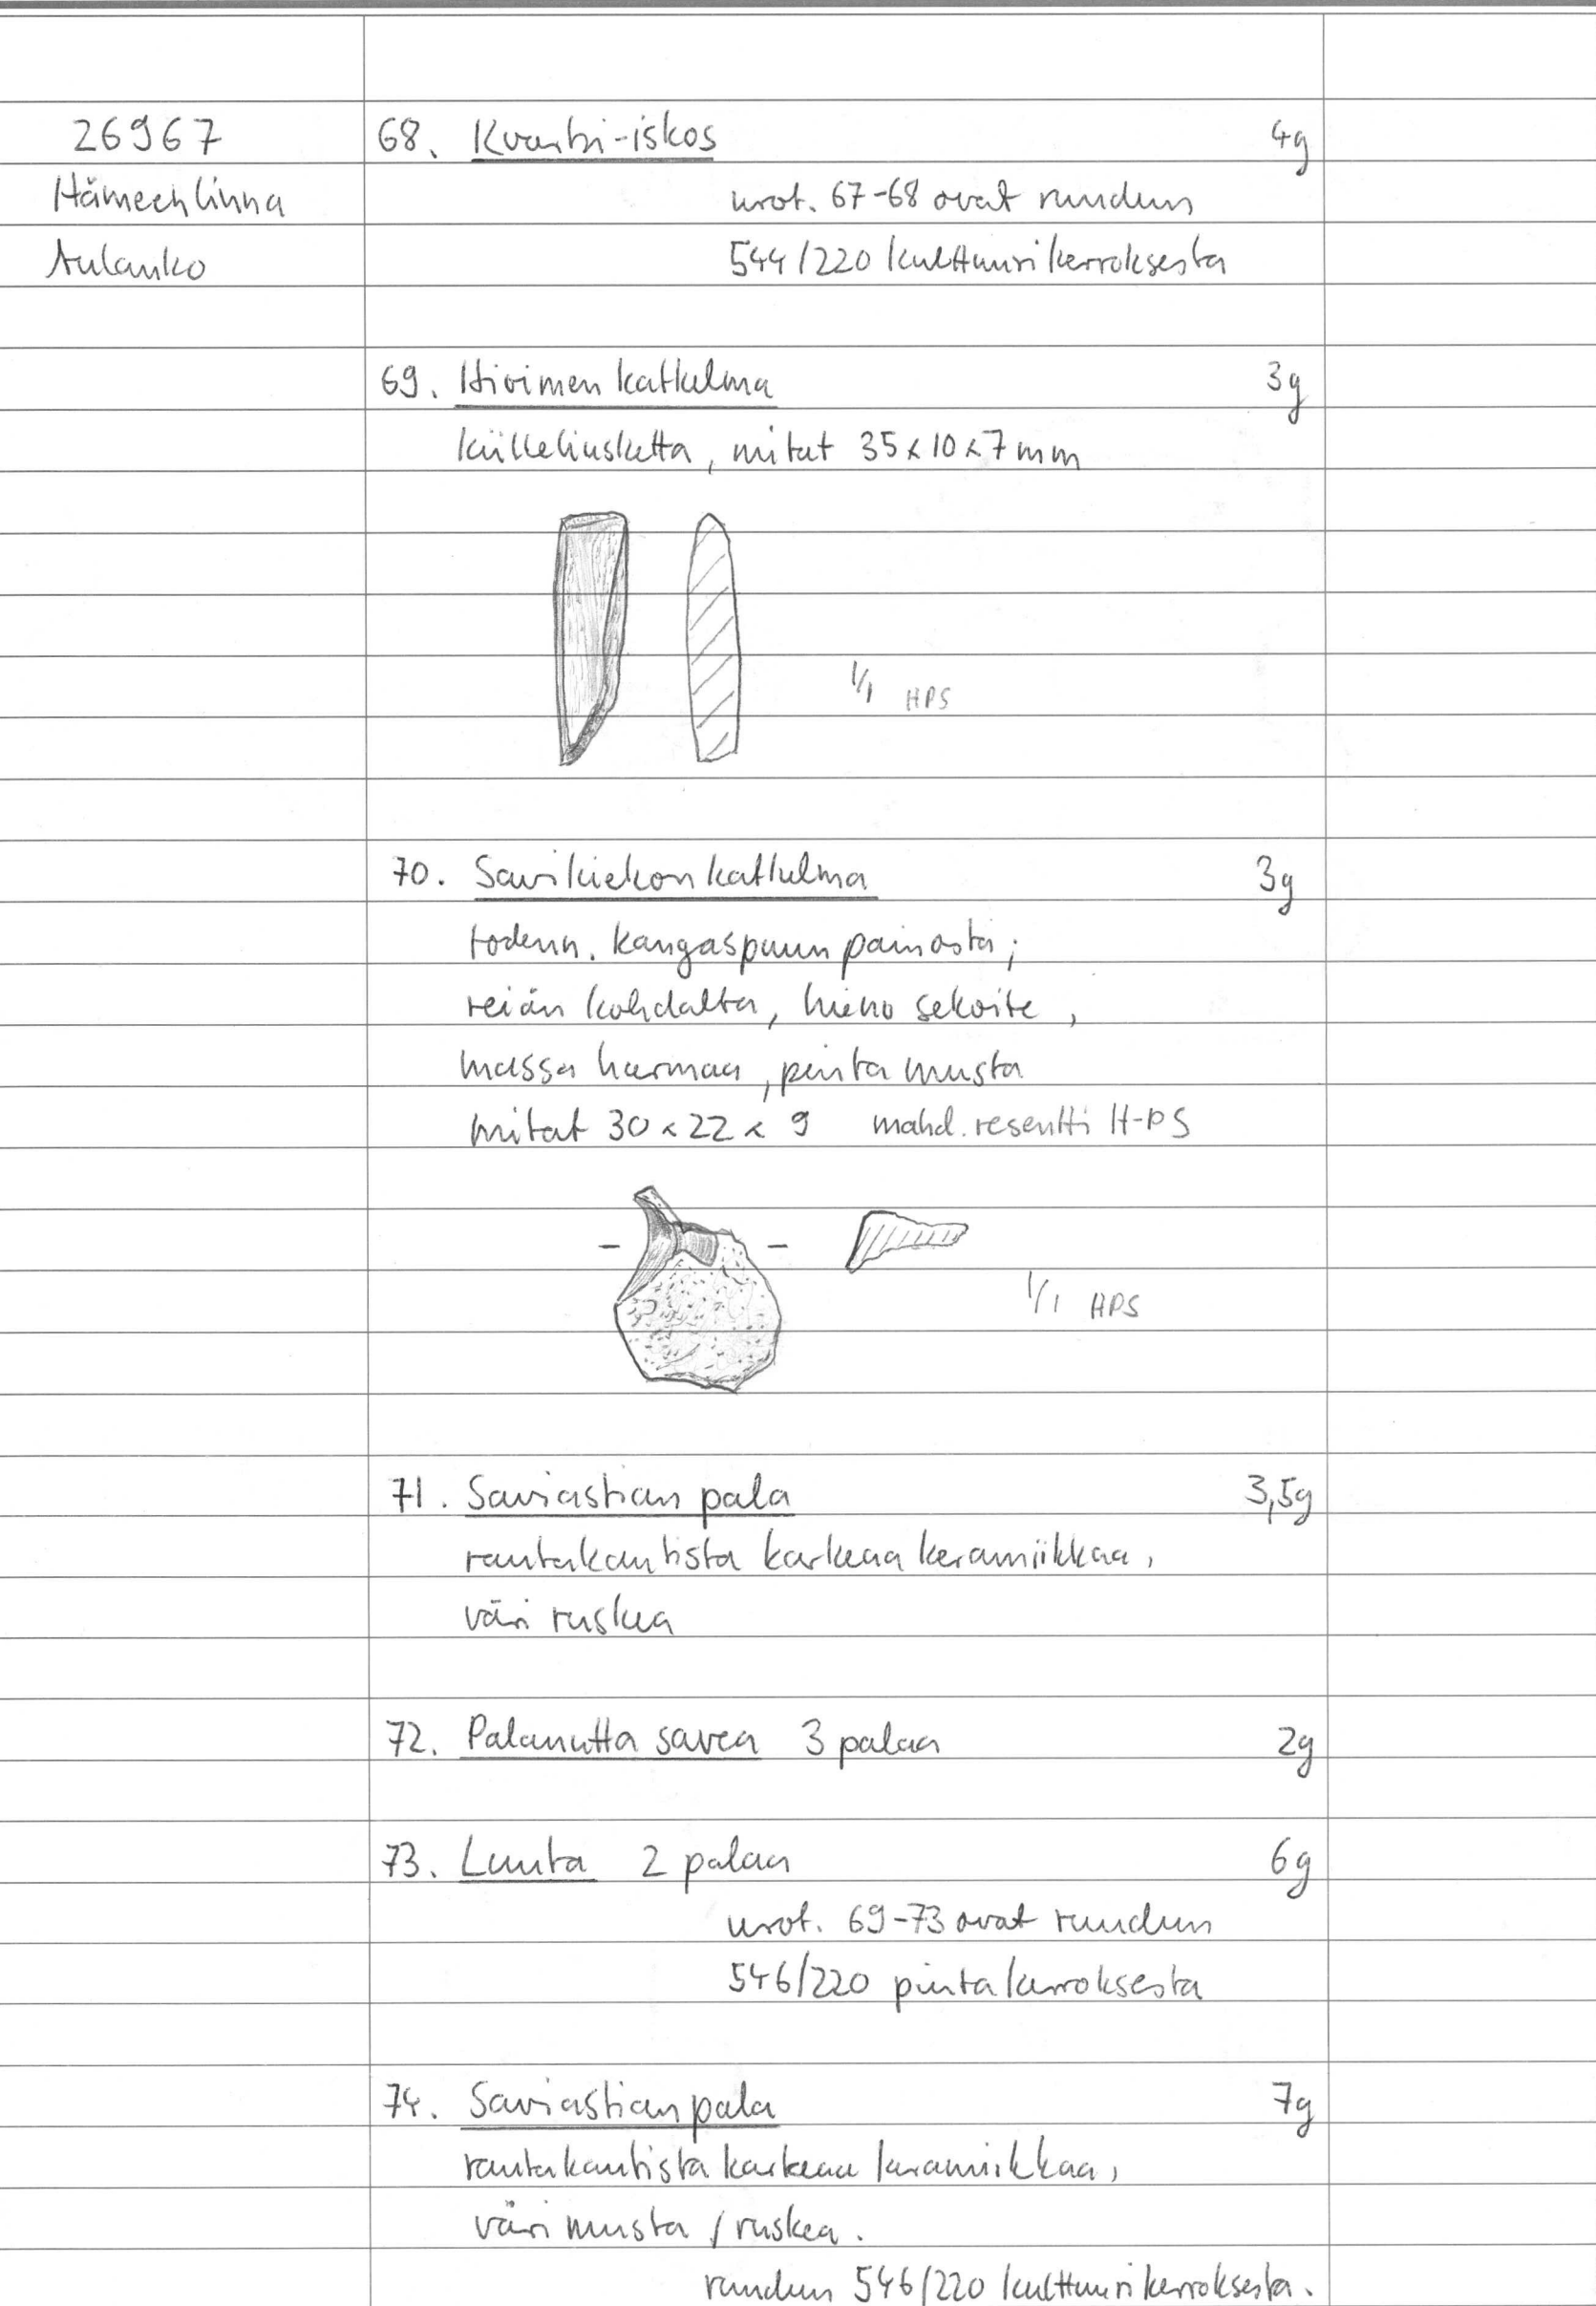 26967
Hämeenlinna
Aulanko
68. Kvartsi-iskos 4g
nrot. 67-68 ovat ruudun
544/220 kulttuurikerroksesta
69. Hioimen katkelma 3g
kiilleliusketta, mitat 35x10x7mm
1/1 HPS
70. Savikiekon katkelma 3g
todenn. kangaspuun painosta;
reiän kohdalta, hieno sekoite,
massa harmaa, pinta musta
mitat 30x22x9 mahd. resentti H-PS
1/1 HPS
71. Saviastian pala 3,5g
rautakautista karkeaa keramiikkaa,
väri ruskea
72. Palanutta savea 3 palaa 2g
73. Luuta 2 palaa 6g
nrot. 69-73 ovat ruudun
546/220 pintakerroksesta
74. Saviastian pala 7g
rautakautista karkeaa keramiikkaa,
väri musta/ruskea.
ruudun 546/220 kulttuurikerroksesta.